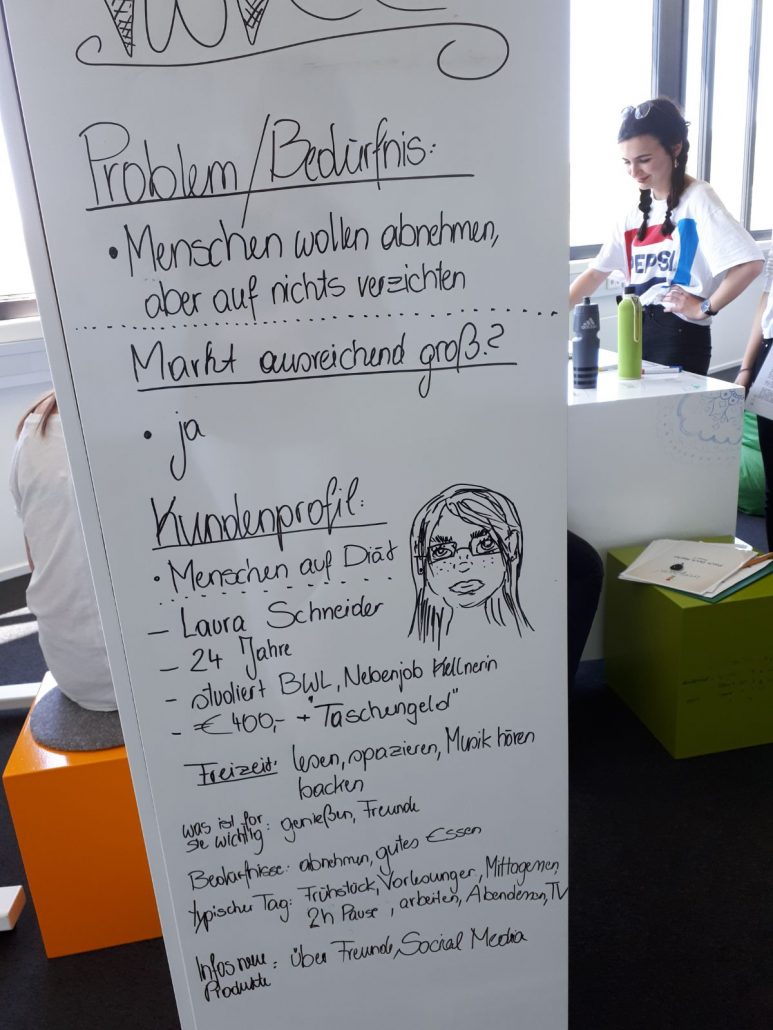 Problem/Bedürfnis:
• Menschen wollen abnehmen,
aber auf nichts verzichten
Markt ausreichend groß?
• ja
Kundenprofil:
• Menschen auf Diät
– Laura Schneider
– 24 Jahre
– studiert BWL, Nebenjob Kellnerin
– € 400,- + "Taschengeld"
Freizeit: lesen, spazieren, Musik hören
backen
was ist für
sie wichtig: genießen, Freunde
Bedürfnisse: abnehmen, gutes Essen
typischer Tag: Frühstück, Vorlesungen, Mittagessen,
2h Pause, arbeiten, Abendessen, TV
Infos neue
Produkte: über Freunde, Social Media
PEPSI
adidas